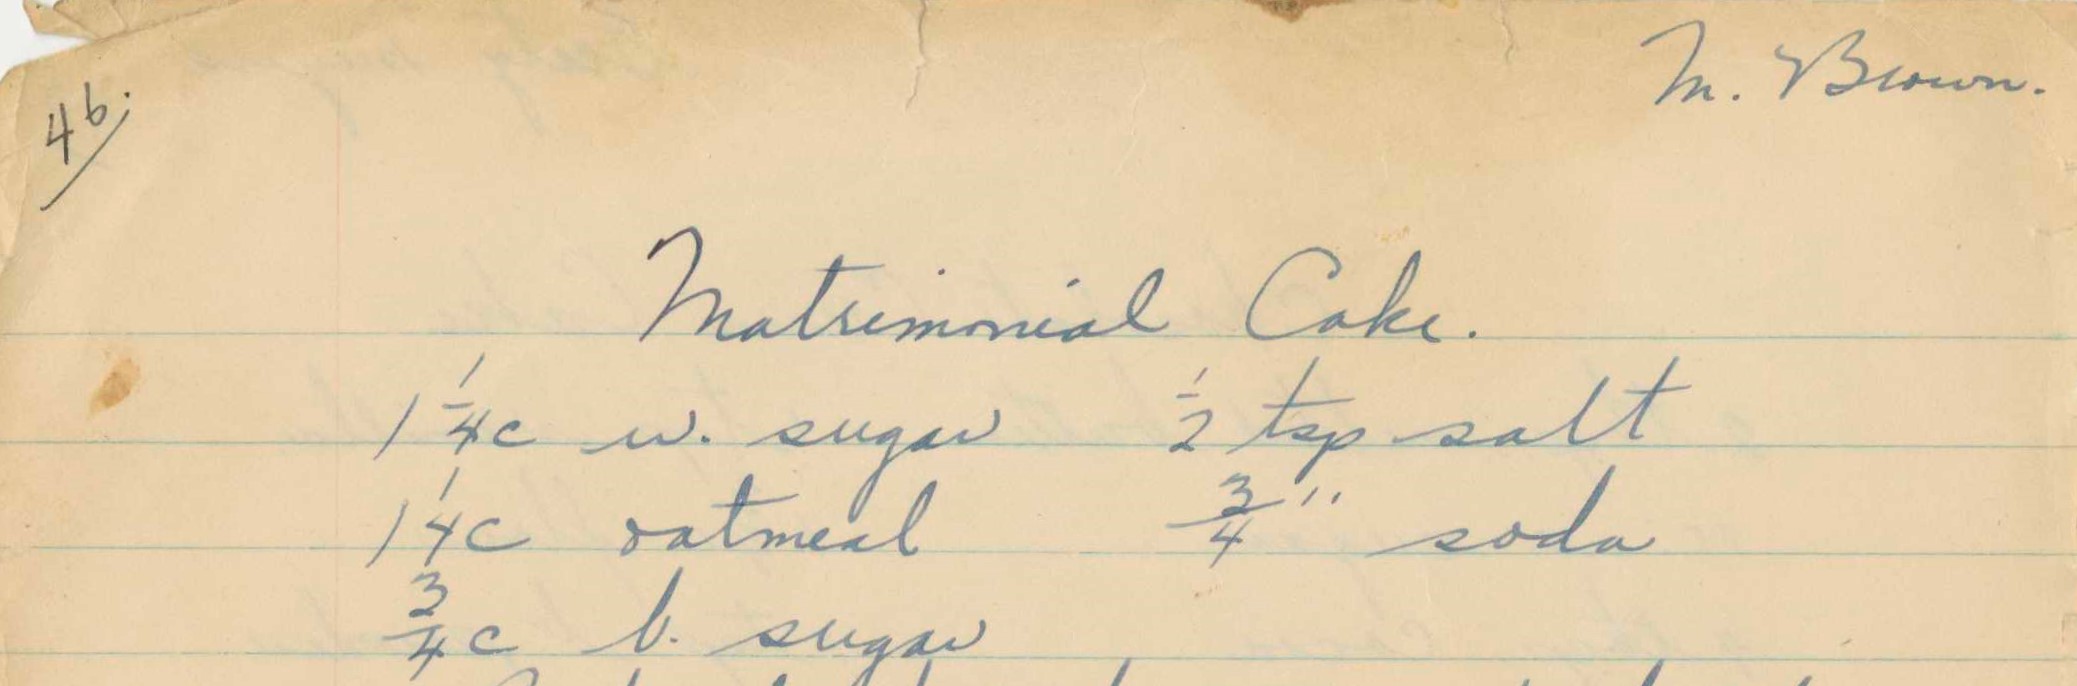 46.
M. Brown.
Matrimonial Cake.
1 1/4 c w. sugar 1/2 tsp salt
1 1/4 c oatmeal 3/4 " soda
3/4 c b. sugar